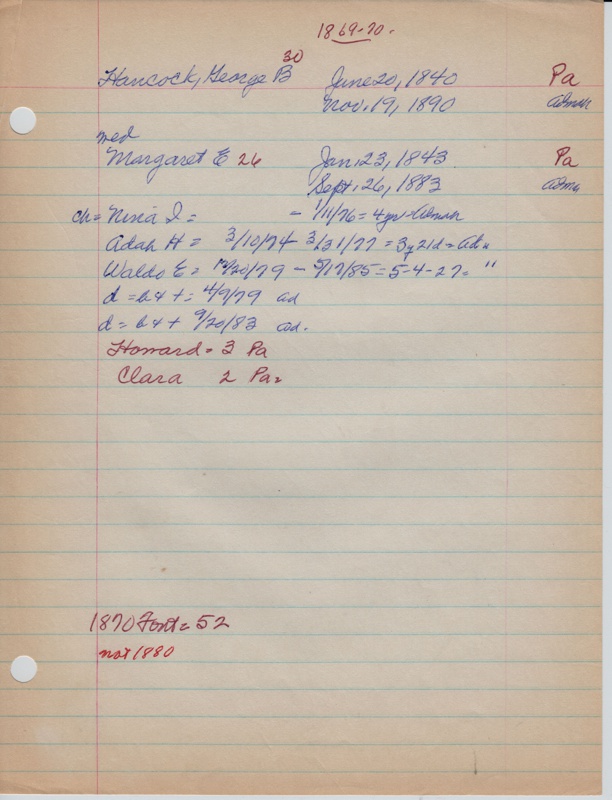 1869-70.
30
Hancock, George B June 20, 1840 Pa
Nov. 19, 1890 Admsn
med
Margaret E 26 Jan. 23, 1843 Pa
Sept. 26, 1883 Adms
ch = Nina I = - 1/11/76 = 4yrs = Admsn
Adah H = 3/10/74 3/31/77 = 3y21d = Ad "
Waldo E = 12/20/79 - 5/17/85 = 5-4-27= "
d = b&t = 4/9/79 ad
d = b&t 9/20/83 ad.
Howard = 3 Pa
Clara 2 Pa=
1870 Font = 52
not 1880